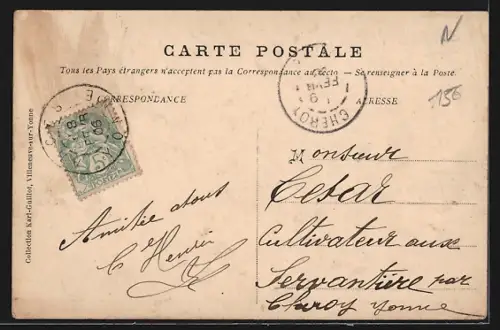 CARTE POSTALE
Tous les Pays étrangers n'acceptent pas la Correspondance au recto — Se renseigner à la Poste.
CORRESPONDANCE
ADRESSE
Collection Karl-Guillot, Villeneuve-sur-Yonne
N
156
CHEROY
FEVR
Amitié a tous
Monsieur
Cesar
Cultivateur aux
Servantière par
Cheroy Yonne